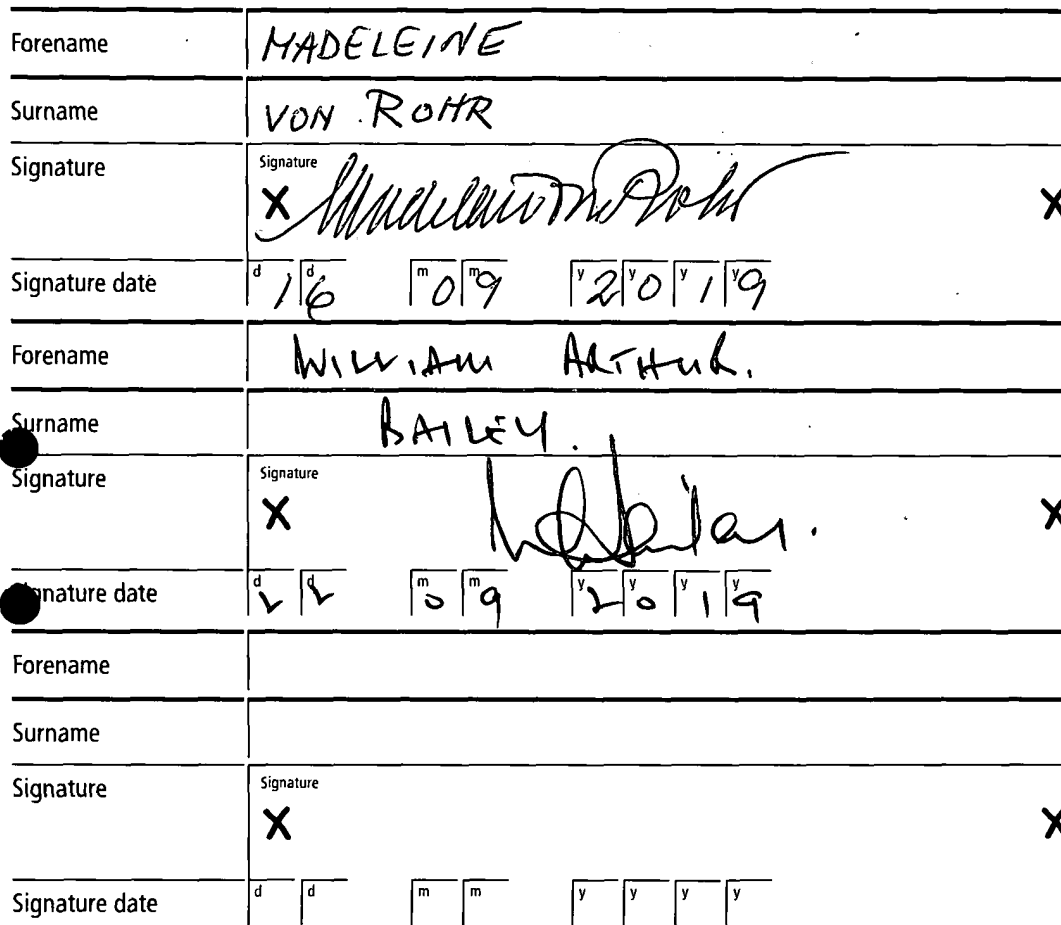 Forename MADELEINE
Surname VON ROHR
Signature Signature
X Madeleine von Rohr X
Signature date d 1 d 6 m 0 m 9 y 2 y 0 y 1 y 9
Forename WILLIAM ARTHUR.
Surname BAILEY.
Signature Signature
X X
Signature date d 2 d 2 m 0 m 9 y 2 y 0 y 1 y 9
Forename
Surname
Signature Signature
X X
Signature date d d m m y y y y